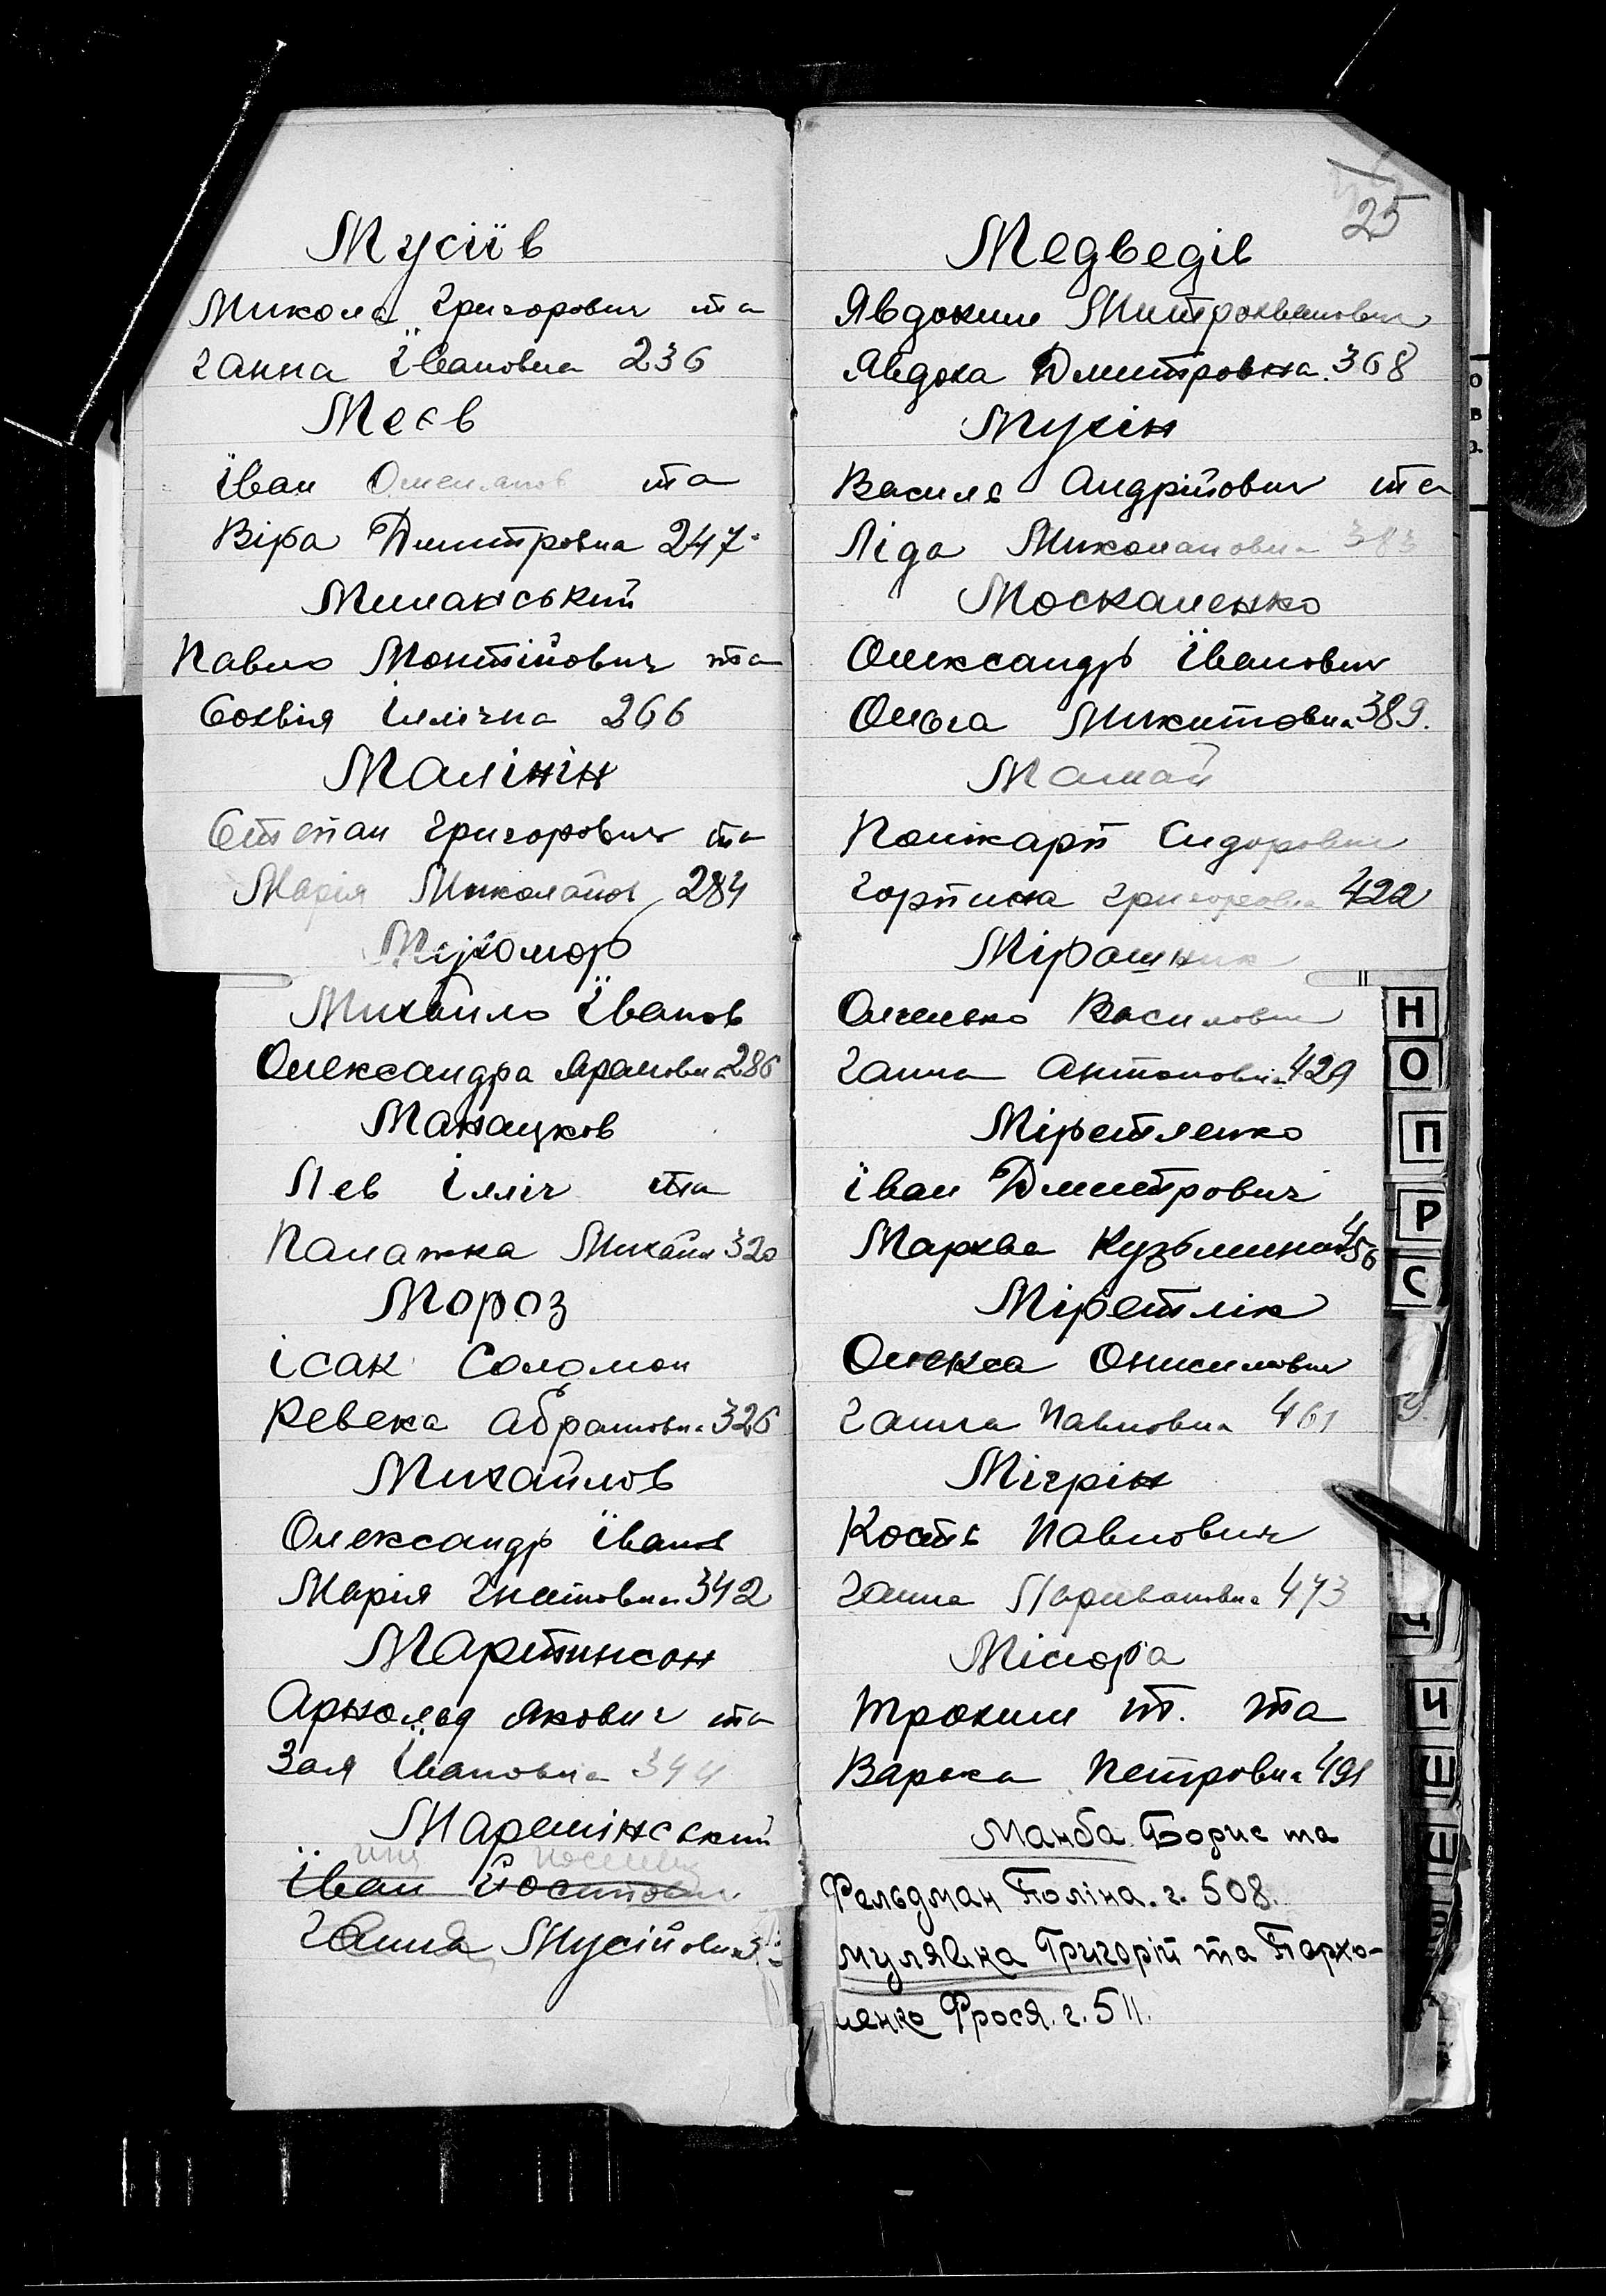 Мусіїв
Микола Григорович та
Ганна Івановна 236
Меєв
Іван та
Віра Дмитровна 247
Миланський
Павло Монтійович та
Софвія Іллічна 266
Малінін
Степан Григорович та
Марія Миколайов 284
Мухомор
Михайло Іванов
Олександра 286
Манацков
Лев Ілліч та
Палажка Михайл 320
Мороз
Ісак Соломон
Ревека Абрамовна 326
Михайлов
Олександр Іванов
Марія Гнатовна 342
Мартинсон
Арнольд Якович та
Зоя Івановна 344
Мартінський
Іван Йосипович
Ганна Мусійовна
25
Медведів
Явдоким Митрохванович
Явдоха Дмитровна 368
Мухін
Василь Андрійович та
Ліда Миколаповна 383
Москаленко
Олександр Іванович
Ольга Микитовна 389.
Мамай
Полікарп Сидорович
Горпина Григоровна 422
Мірошник
Василович
Ганна Антоновна 429
Іван Дмитрович
Мархва Кузьминов 456
Олекса Онисимович
Ганна Павловна 461
Мігрін
Кость Павлович
Ганна 473
Місюра
Трохим Т. та
Варька Петровна 491
Манба Борис та
Фельдман Поліна. г. 508.
Мулявка Григорій та Пархо-
менко Фрося. г. 511.
Н
О
П
Р
С
У
Ч